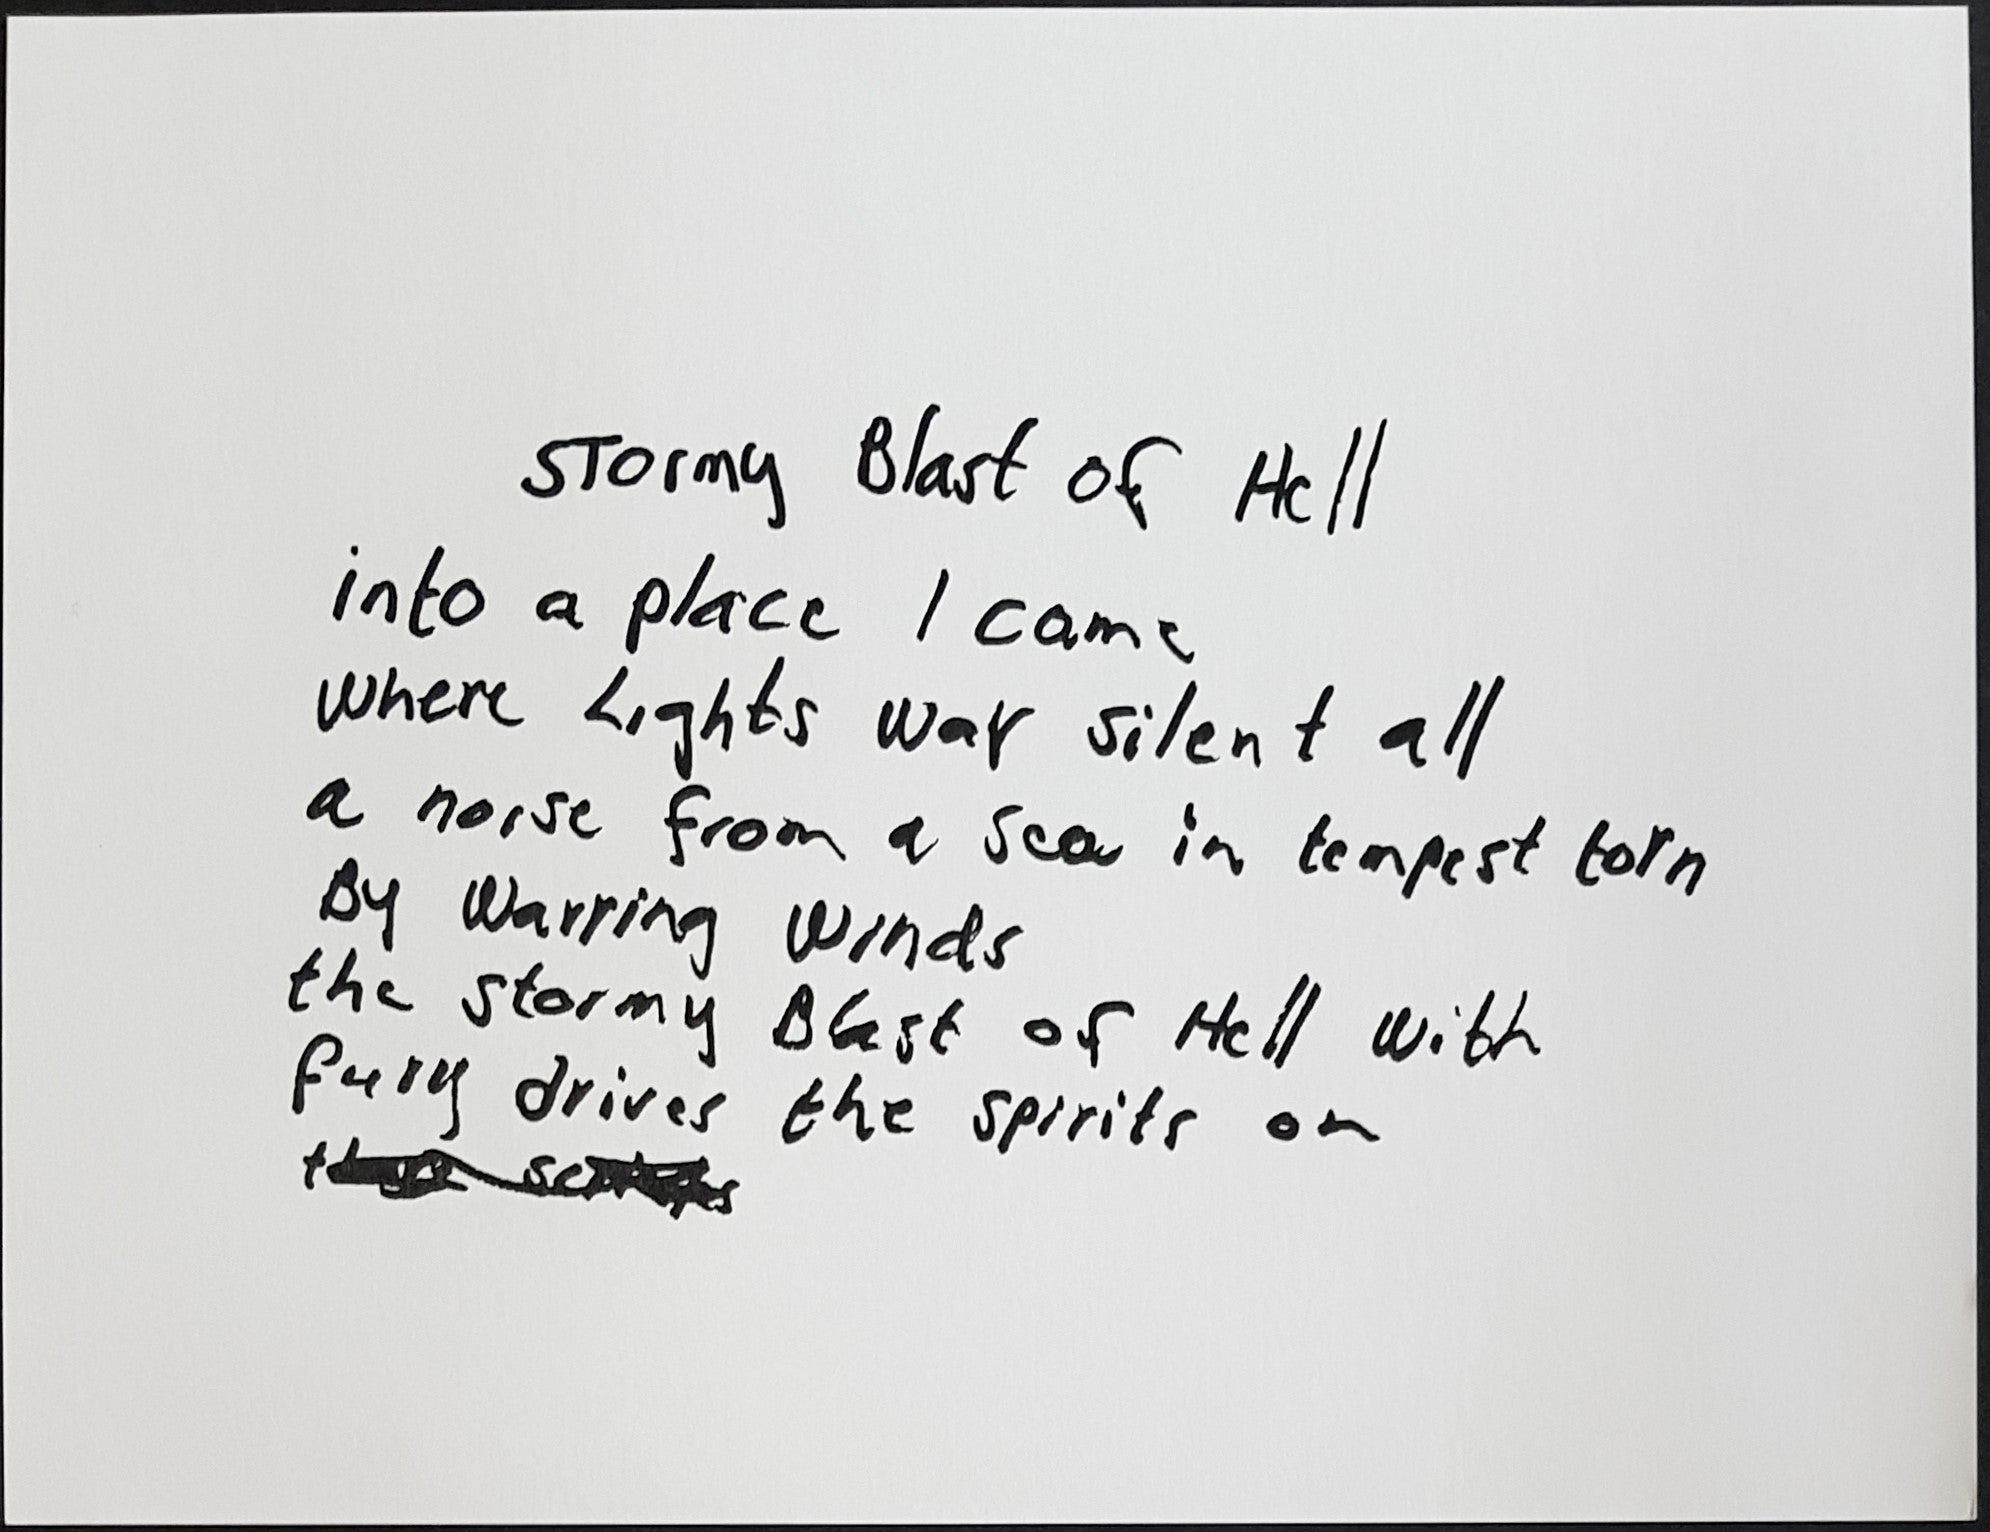 STormy Blast of Hell
into a place I came
where Lights war silent all
a noise from a sea in tempest torn
By Warring Winds
the stormy Blast of Hell with
fury drives the spirits on